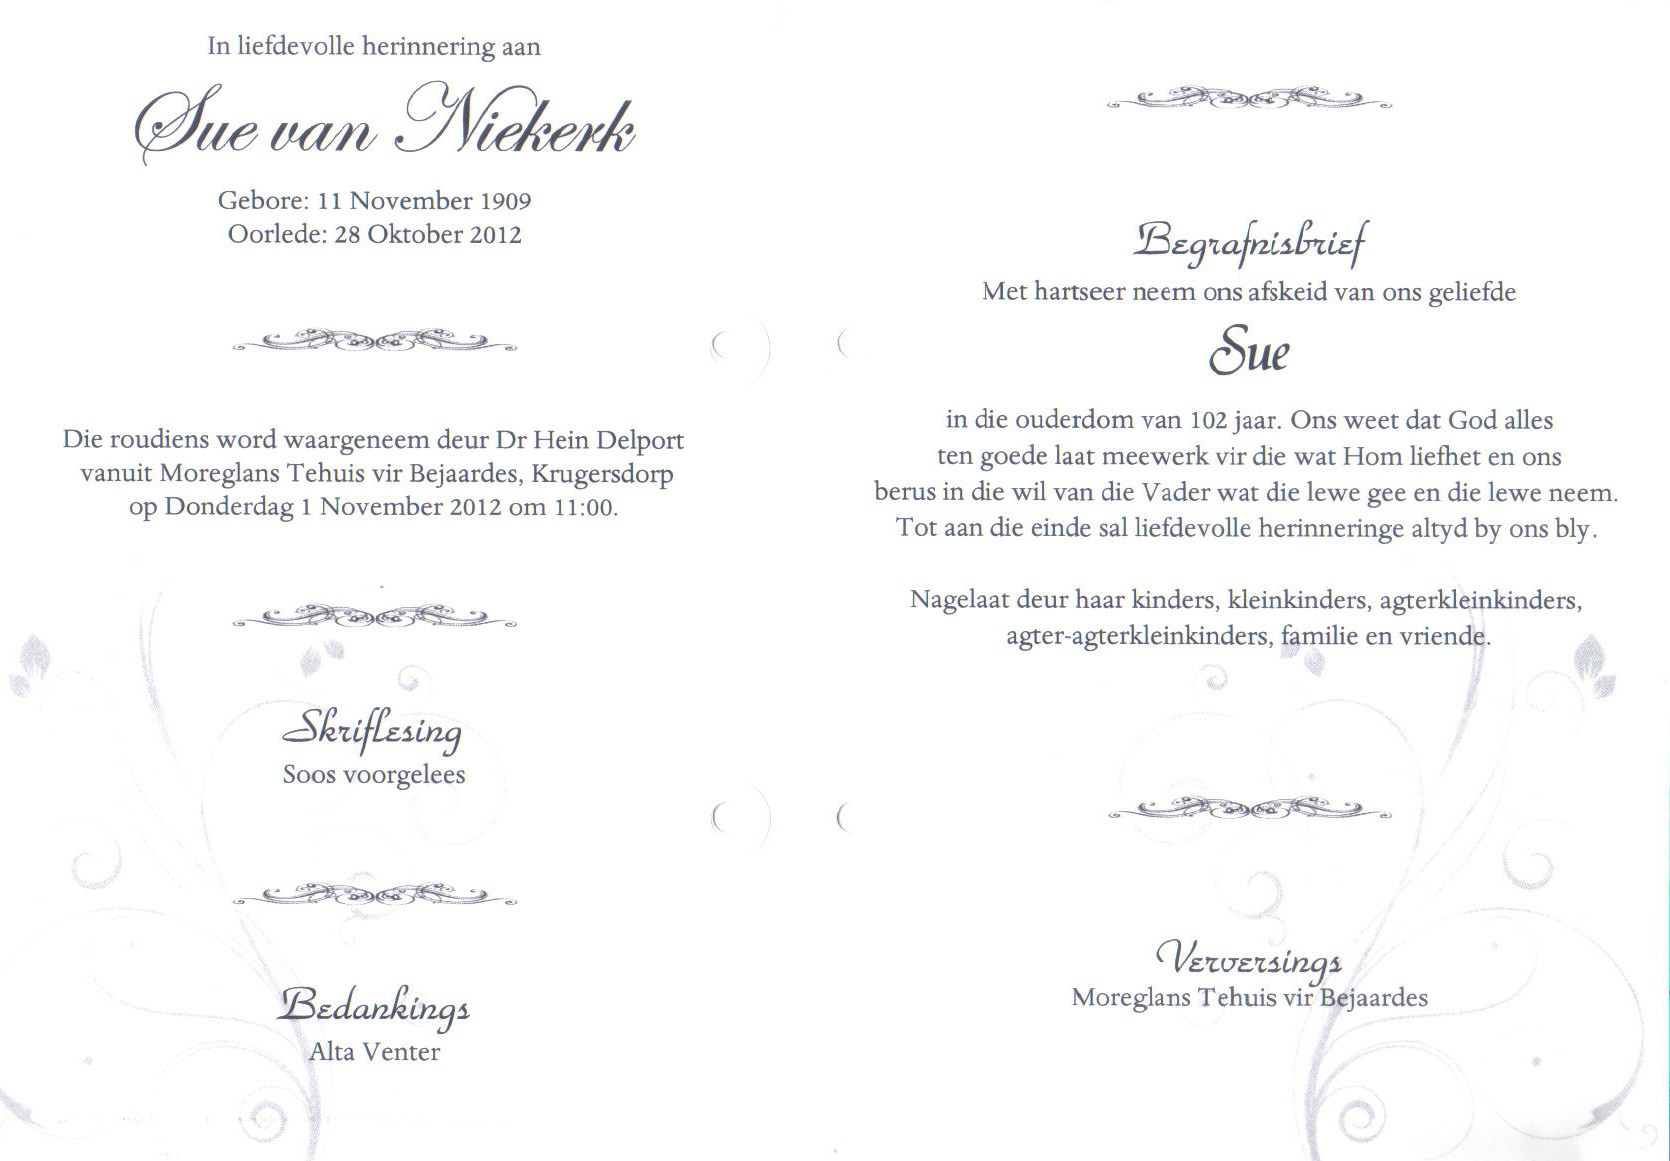 In liefdevolle herinnering aan
Sue van Niekerk
Gebore: 11 November 1909
Oorlede: 28 Oktober 2012
Die roudiens word waargeneem deur Dr Hein Delport
vanuit Moreglans Tehuis vir Bejaardes, Krugersdorp
op Donderdag 1 November 2012 om 11:00.
Skriflesing
Soos voorgelees
Bedankings
Alta Venter
Begrafnisbrief
Met hartseer neem ons afskeid van ons geliefde
Sue
in die ouderdom van 102 jaar. Ons weet dat God alles
ten goede laat meewerk vir die wat Hom liefhet en ons
berus in die wil van die Vader wat die lewe gee en die lewe neem.
Tot aan die einde sal liefdevolle herinneringe altyd by ons bly.
Nagelaat deur haar kinders, kleinkinders, agterkleinkinders,
agter-agterkleinkinders, familie en vriende.
Verversings
Moreglans Tehuis vir Bejaardes